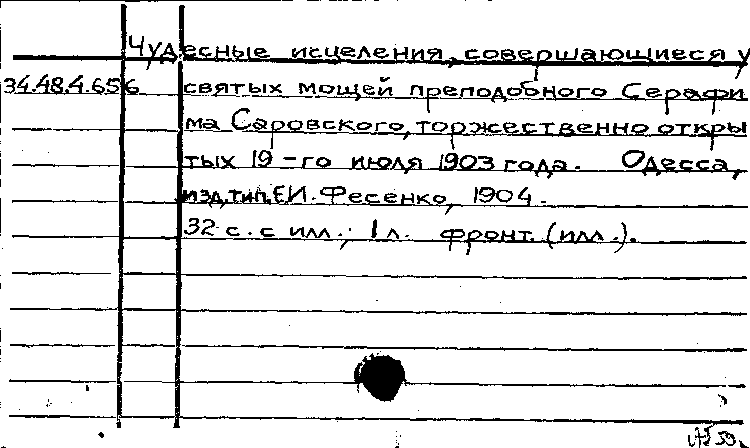 Чудесные исцеления, совершающиеся у
34.48.4.656 святых мощей преподобного Серафи
ма Саровского, торжественно откры
тых 19-го июля 1903 года. Одесса,
изд. тип. Е.И. Фесенко, 1904.
32 с. с илл.; 1 л. фронт. (илл.).